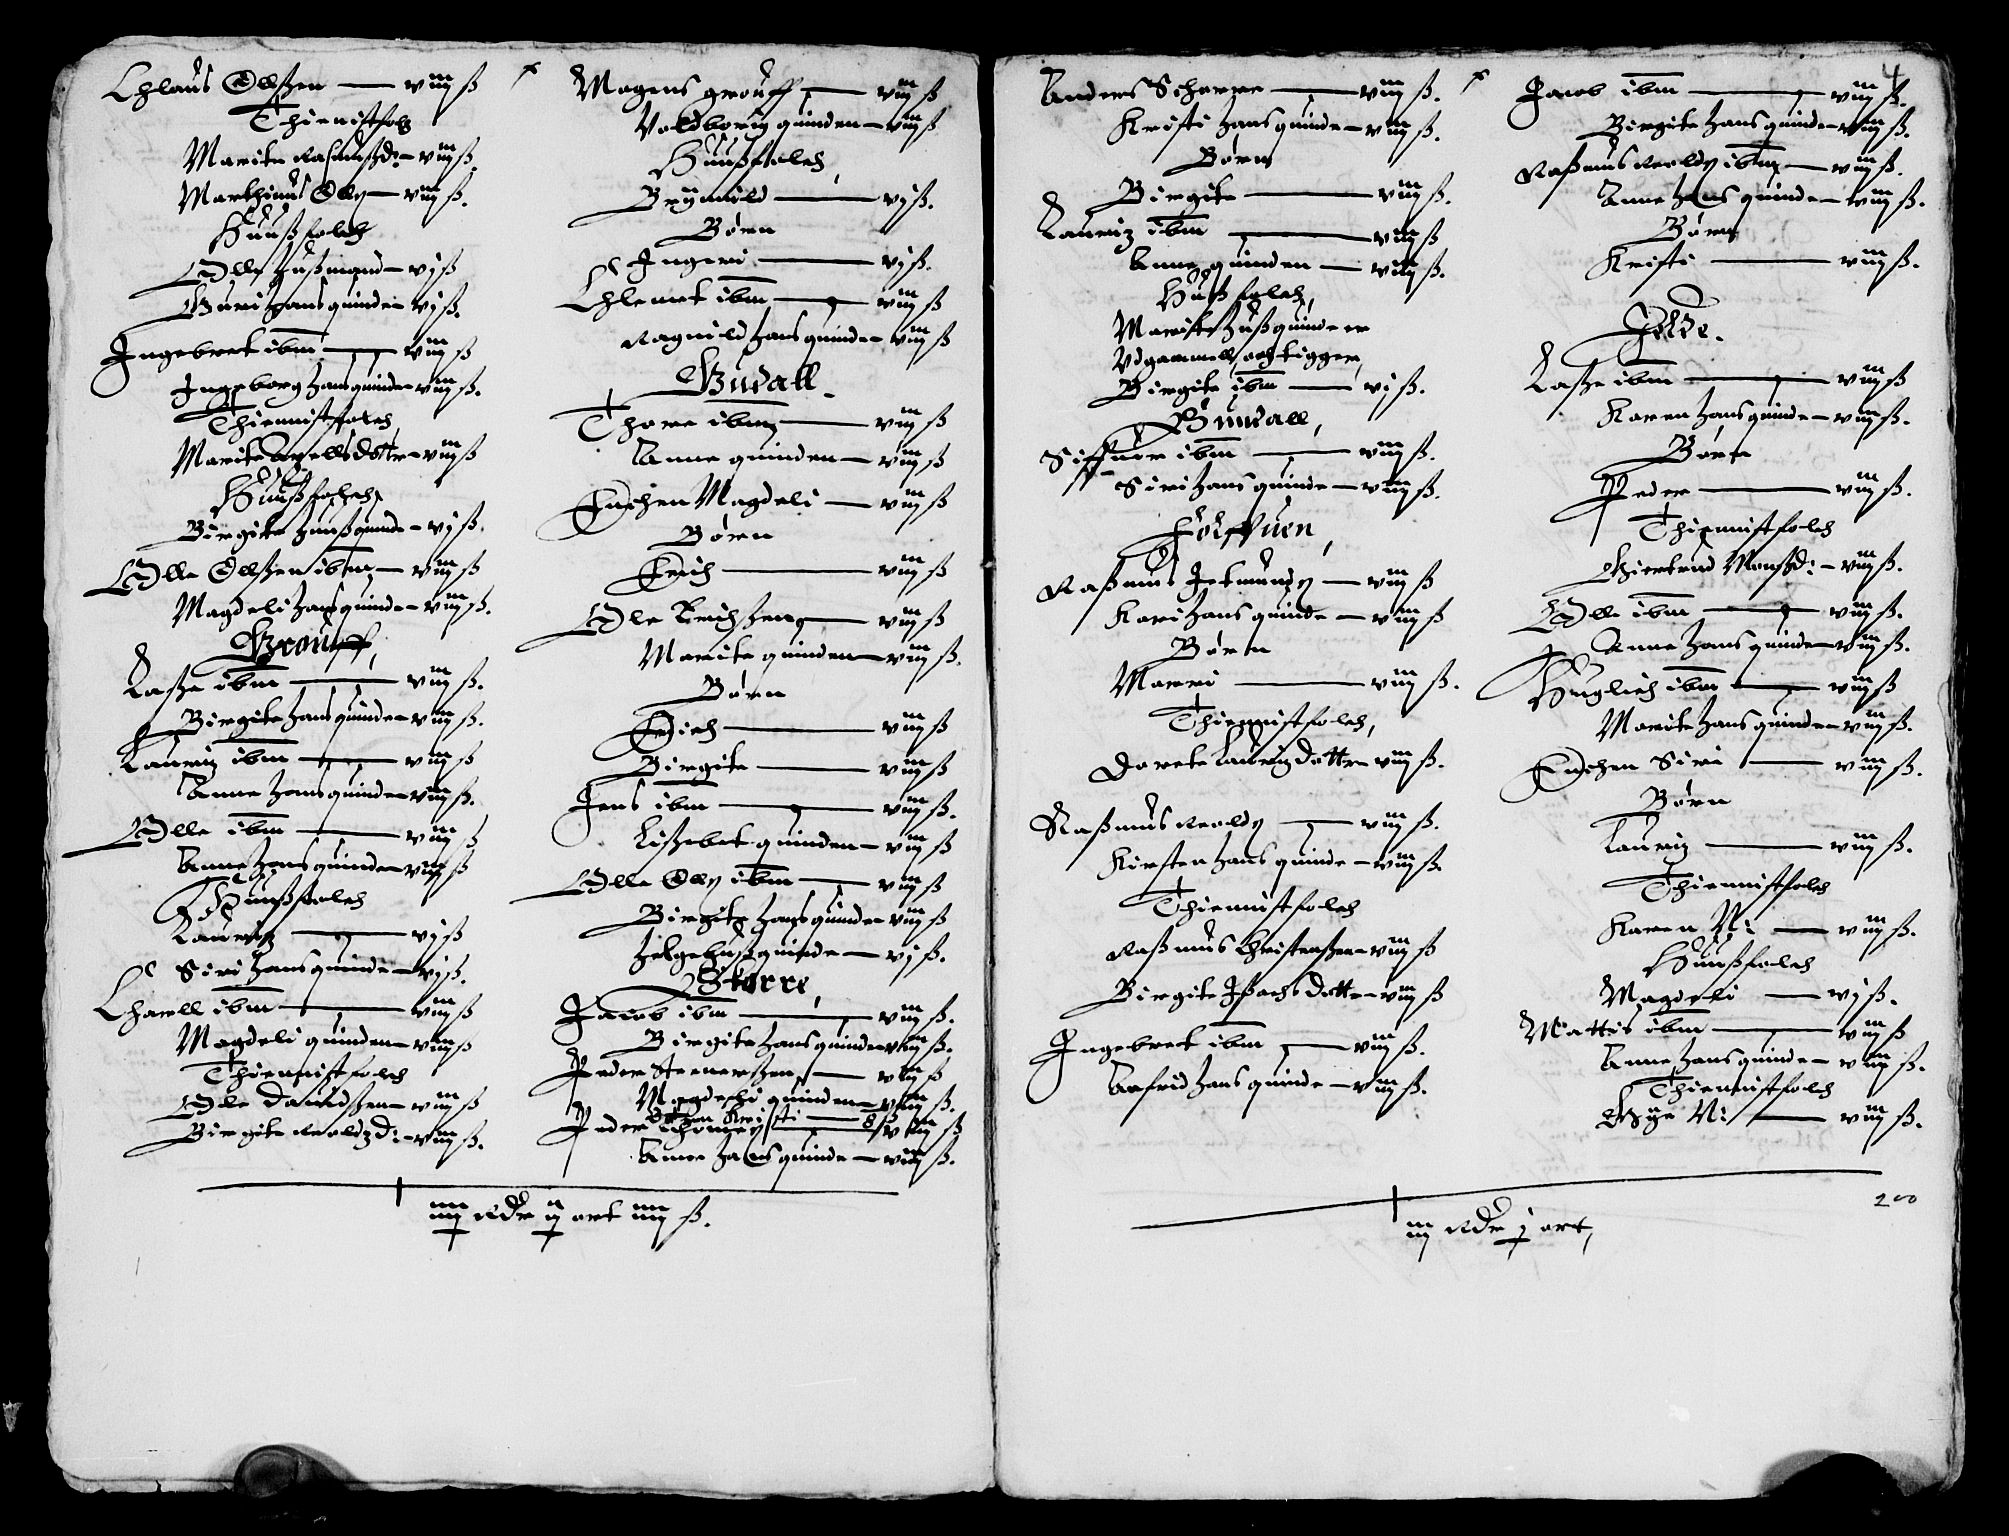 Chlaus Ollssen — viij ß
Thienistfolch
Marite Rasmusd: — viij ß.
Marthinus Olls — viij ß.
Huußfolch
Olle Hußmand — vj ß
Guri Hans quinde — vj ß.
Ingebret ibm — viij ß
Ingeborg Hans quinde — viij ß.
Thiennistfolch
Marite dotter — viij ß
Huußfolch
Birgite Hußquinde — vj ß.
Olle Ollssen ibm — viij ß
Magdeli Hans quinde — viij ß.
Grouff,
Lasse ibm — viij ß.
Birgite Hans quinde — viij ß.
Lauritz ibm — viij ß
Anne Hans quinde — viij ß.
Olle ibm — viij ß
Anne Hans quinde — viij ß
Huußfolch
Lauritz — vj ß
Siri Hans quinde — vj ß.
Charll ibm — viij ß
Magdeli quinden — viij ß
Thiennistfolch
Ole Dauidssen — viij ß
Birgite Roaldzd: — viij ß.
Mogens grouff — viij ß
Voldborig quinden — viij ß
Huußfolch,
Brynnild — vj ß.
Børn
Ingeri — vj ß.
Chlemet ibm — viij ß
Ragnild Hans quinde — viij ß
Gudall.
Thore ibm — viij ß
Anne quinden — viij ß
Enchen Magdeli — viij ß
Børn
Erich — viij ß
Ole Erichssen — viij ß
Marite quinden — viij ß.
Børn
Erich — viij ß
Birgite — viij ß
Jens ibm — viij ß.
Lissebet quinden — viij ß
Olle Olls ibm — viij ß
Birgite Hans quinde — viij ß
Helge Hußquinde — vj ß.
Større,
Jacob ibm — viij ß.
Birgite Hans quinde — viij ß.
Peder Steenerssen — viij ß
Magdeli quinden — viij ß.
Enchen Kristi — 8 ß
Peder Thomes — viij ß
Anne Hans quinde — viij ß.
iiij Rdr ij ort iiij ß.
4
Anders Scharre — viij ß.
Kristi Hans quinde — viij ß.
Børn
Birgite — viij ß.
Lauritz ibm — viij ß
Anne quinden — viij ß.
Hußfolch,
Marite Hußquinde er
Vdgammell och tigger,
Birgite ibm — vj ß.
Bundall,
Siffuor ibm — viij ß.
Siri Hans quinde — viij ß.
Folffuen,
Raßmus Jetmunds — viij ß
Kari Hans quinde — viij ß
Børn
Marri — viij ß.
Thiennistfolch,
Dorete Lauritz dotter — viij ß.
Raßmus Roalds — viij ß.
Kirsten Hans quinde — viij ß.
Thiennistfolch
Raßmus Christenssen — viij ß
Birgite Ißachs dotter — viij ß
Ingebret ibm — viij ß.
Aafrid Hans quinde — viij ß.
Jacob ibm — viij ß.
Birgite Hans quinde — viij ß.
Raßmus Roalds ibm — viij ß.
Anne Hans quinde — viij ß.
Børn
Kristi — viij ß.
Lasse ibm — viij ß
Karen Hans quinde — viij ß.
Børn
Peder — viij ß.
Thiennistfolch
Giertrud Monssd: — viij ß.
Olle ibm — viij ß.
Anne Hans quinde — viij ß.
Huglich ibm — viij ß
Marite Hans quinde — viij ß.
Enchen Siri — viij ß.
Børn
Lauritz — viij ß.
Thiennistfolch
Karen N: — viij ß.
Huußfolch
Magdeli — vj ß.
Mattis ibm — viij ß
Anne Hans quinde — viij ß.
Thiennistfolch
N: — viij ß.
200
iiij Rdr j ort,